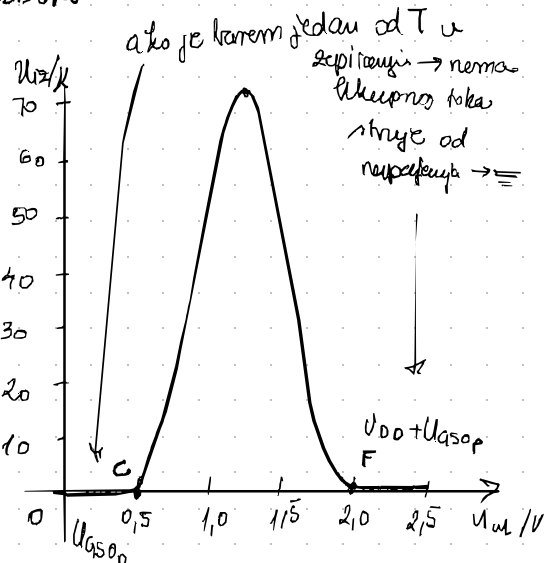 ako je barem jedan od T u
zapiranju → nema
ukupnog toka
struje od
napajanja →
Uiz/V
70
60
50
40
30
20
10
UDD+UGSOp
C
F
0
0,5
1,0
1,5
2,0
2,5
Uul /V
UGSOn